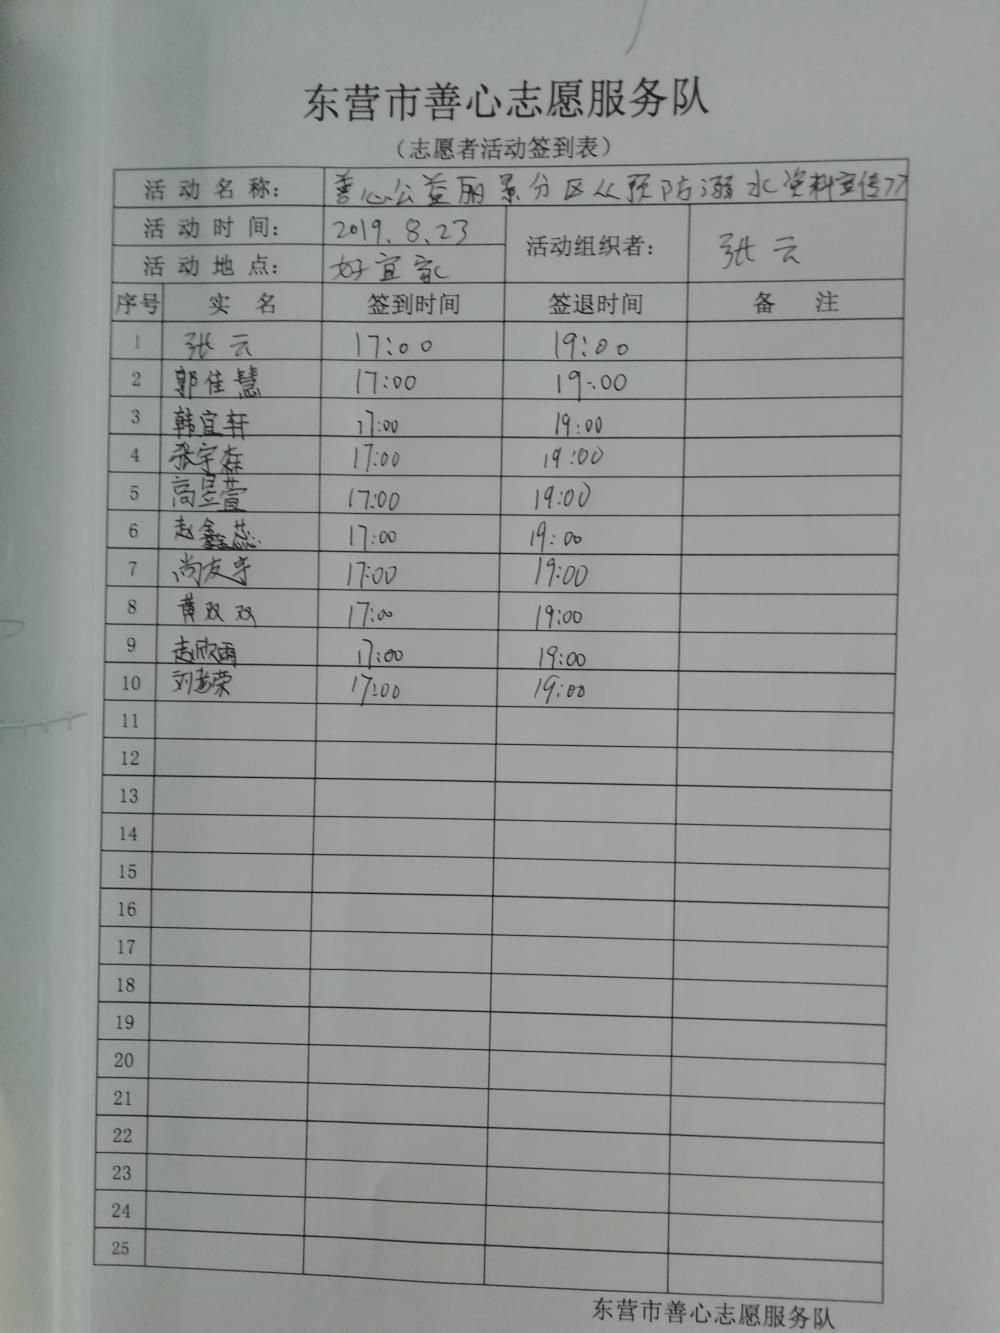 东营市善心志愿服务队
（志愿者活动签到表）
活动名称： 善心公益丽景分区《预防溺水资料宣传》
活动时间： 2019.8.23 活动组织者： 张云
活动地点： 好宜家
序号 实名 签到时间 签退时间 备注
1 张云 17:00 19:00
2 郭佳慧 17:00 19:00
3 韩宜轩 17:00 19:00
4 张宇森 17:00 19:00
5 高昱萱 17:00 19:00
6 赵鑫蕊 17:00 19:00
7 尚友宇 17:00 19:00
8 黄双双 17:00 19:00
9 赵欣雨 17:00 19:00
10 17:00 19:00
11
12
13
14
15
16
17
18
19
20
21
22
23
24
25
东营市善心志愿服务队